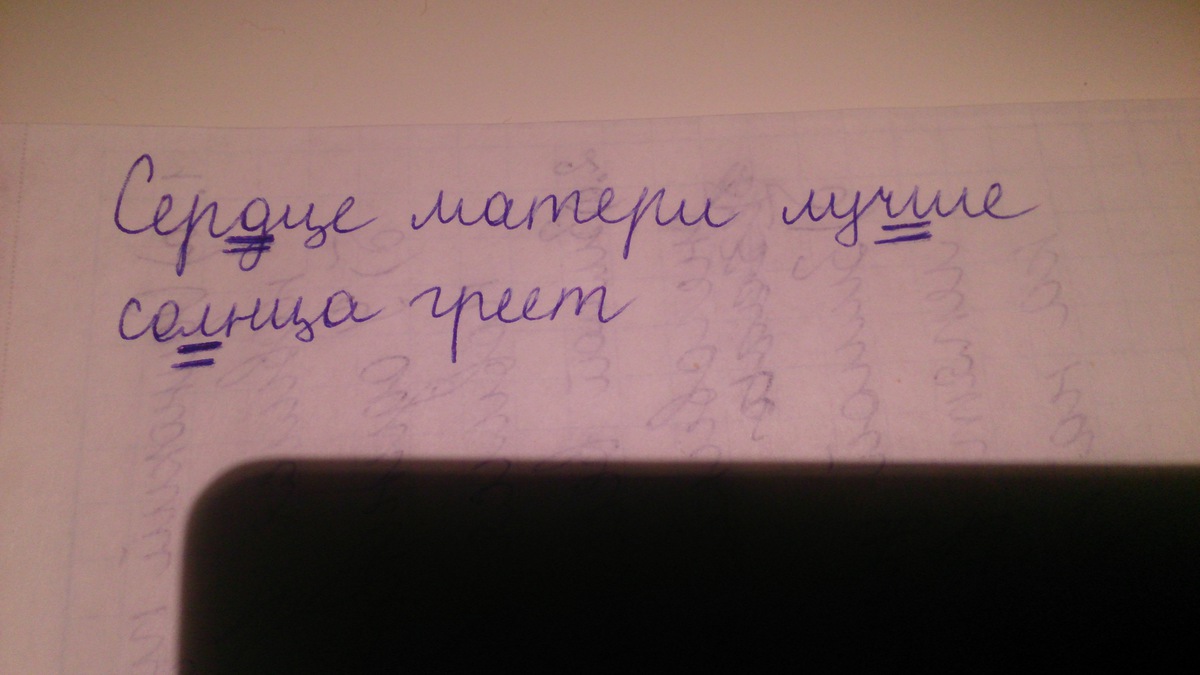 Сердце матери лучше
солнца греет